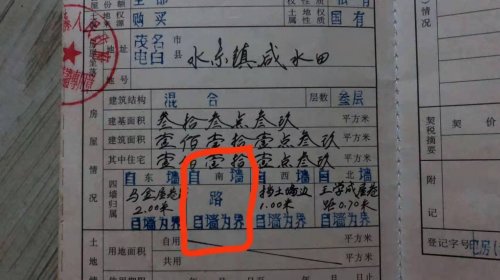 购买
国有
地址
茂名
电白
市
县
水东镇咸水田
建筑结构 混合 层数 叁层
建基面积 叁拾叁点叁玖 平方米
建筑面积 壹佰壹拾壹点叁玖 平方米
其中住宅 壹佰壹拾壹点叁玖 平方米
房屋情况
四墙归属
自东墙 自南墙 自西墙 自北墙
路
2.00米 1.00米 路0.70米
自墙为界 自墙为界 自墙为界 自墙为界
土地
用地面积
自用 平方米
共用 平方米
情况
契税摘要
契价
登记字号